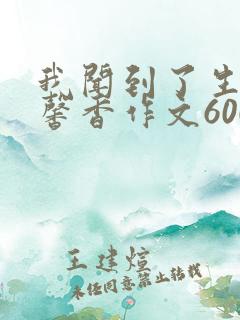 我闻到了生
馨香作文60
王建煊
未经同意禁止转载